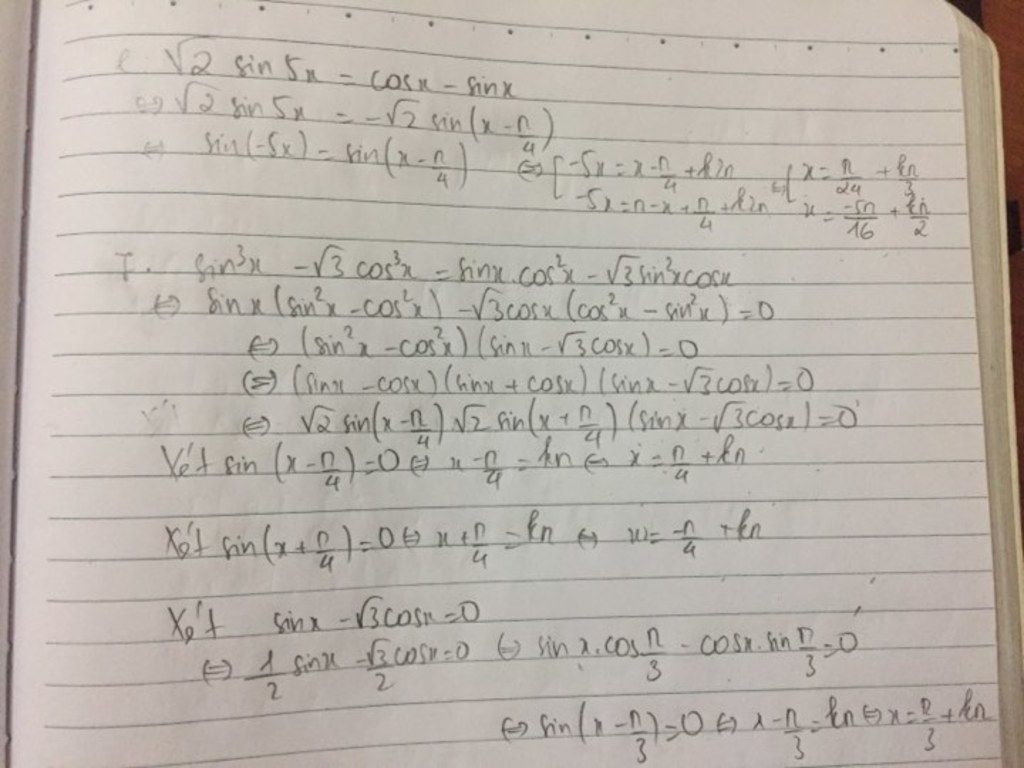 e. √2 sin 5x = cosx − sinx
⇔ √2 sin 5x = −√2 sin(x − π/4)
⇔ sin(−5x) = sin(x − π/4) ⇔ [ −5x = x − π/4 + k2π ⇔ [ x = π/24 + kπ/3
−5x = π − x + π/4 + k2π x = −5π/16 + kπ/2
f. sin³x − √3 cos³x = sinx.cos²x − √3 sin²x cosx
⇔ sinx (sin²x − cos²x) − √3 cosx (cos²x − sin²x) = 0
⇔ (sin²x − cos²x) (sinx − √3 cosx) = 0
⇔ (sinx − cosx) (sinx + cosx) (sinx − √3 cosx) = 0
⇔ √2 sin(x − π/4) √2 sin(x + π/4) (sinx − √3 cosx) = 0
Xét sin (x − π/4) = 0 ⇔ x − π/4 = kπ ⇔ x = π/4 + kπ
Xét sin(x + π/4) = 0 ⇔ x + π/4 = kπ ⇔ x = −π/4 + kπ
Xét sinx − √3 cosx = 0
⇔ 1/2 sinx − √3/2 cosx = 0 ⇔ sin x.cos π/3 − cosx.sin π/3 = 0
⇔ sin(x − π/3) = 0 ⇔ x − π/3 = kπ ⇔ x = π/3 + kπ